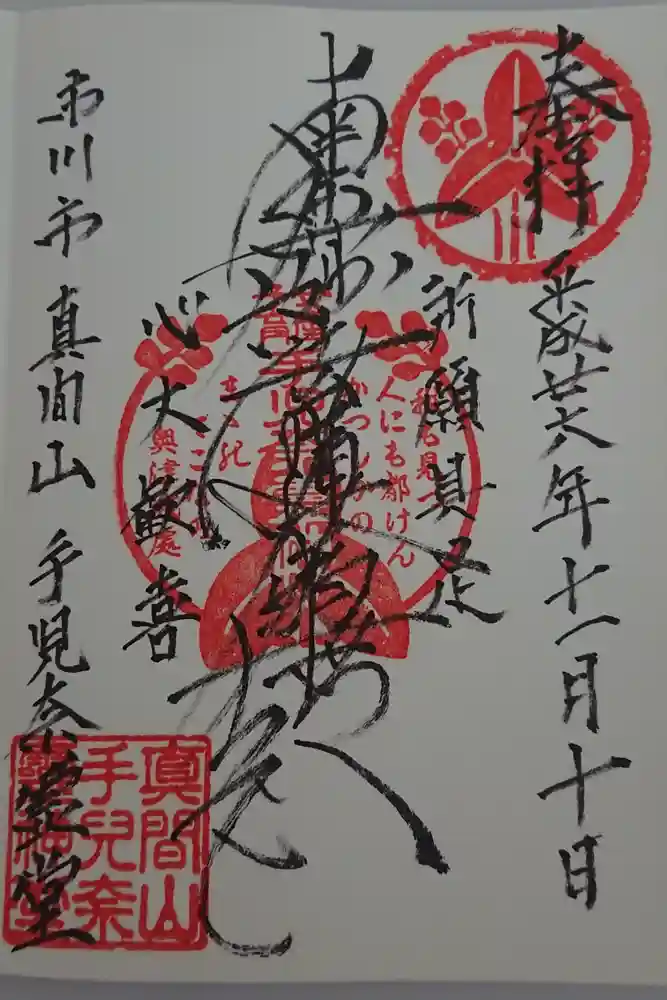 奉拝 平成廿六年十一月十日
所願具足
南無妙法蓮華経
心大歓喜
市川市 真間山 手児奈霊堂
人にも都けん
かつしかの
真間山
手兒奈